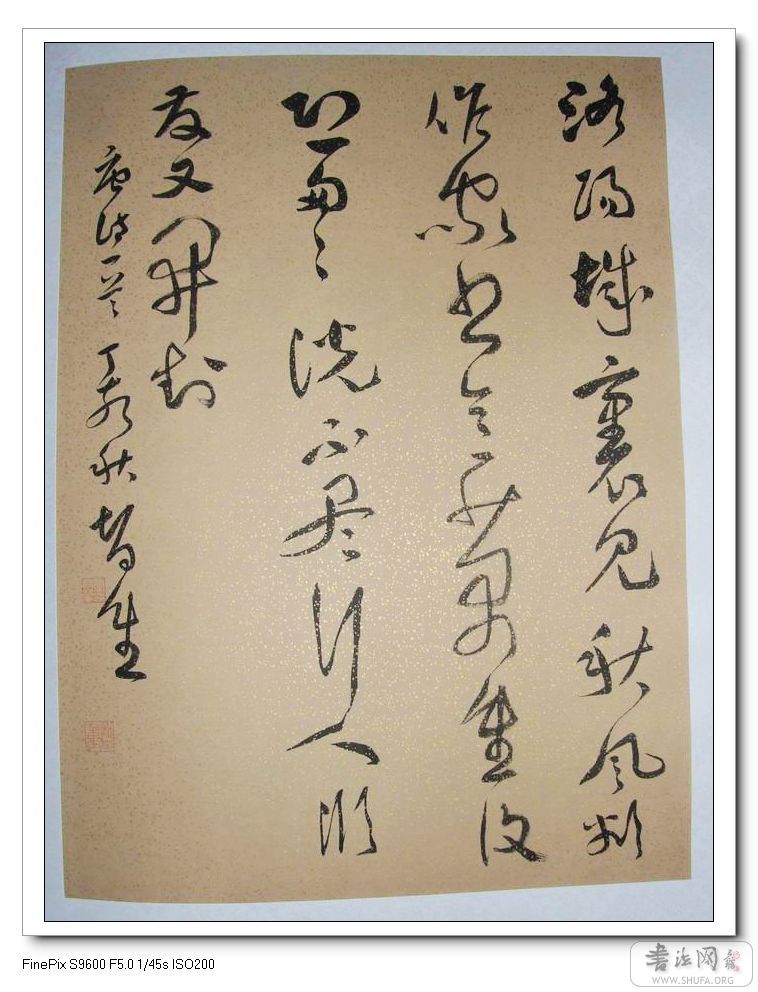 洛陽城裏見秋風欲
作家书意萬重復
恐匆〻説不尽行人臨
发又開封
唐诗一首 丁亥秋
FinePix S9600 F5.0 1/45s ISO200
書法网
WWW.SHUFA.ORG